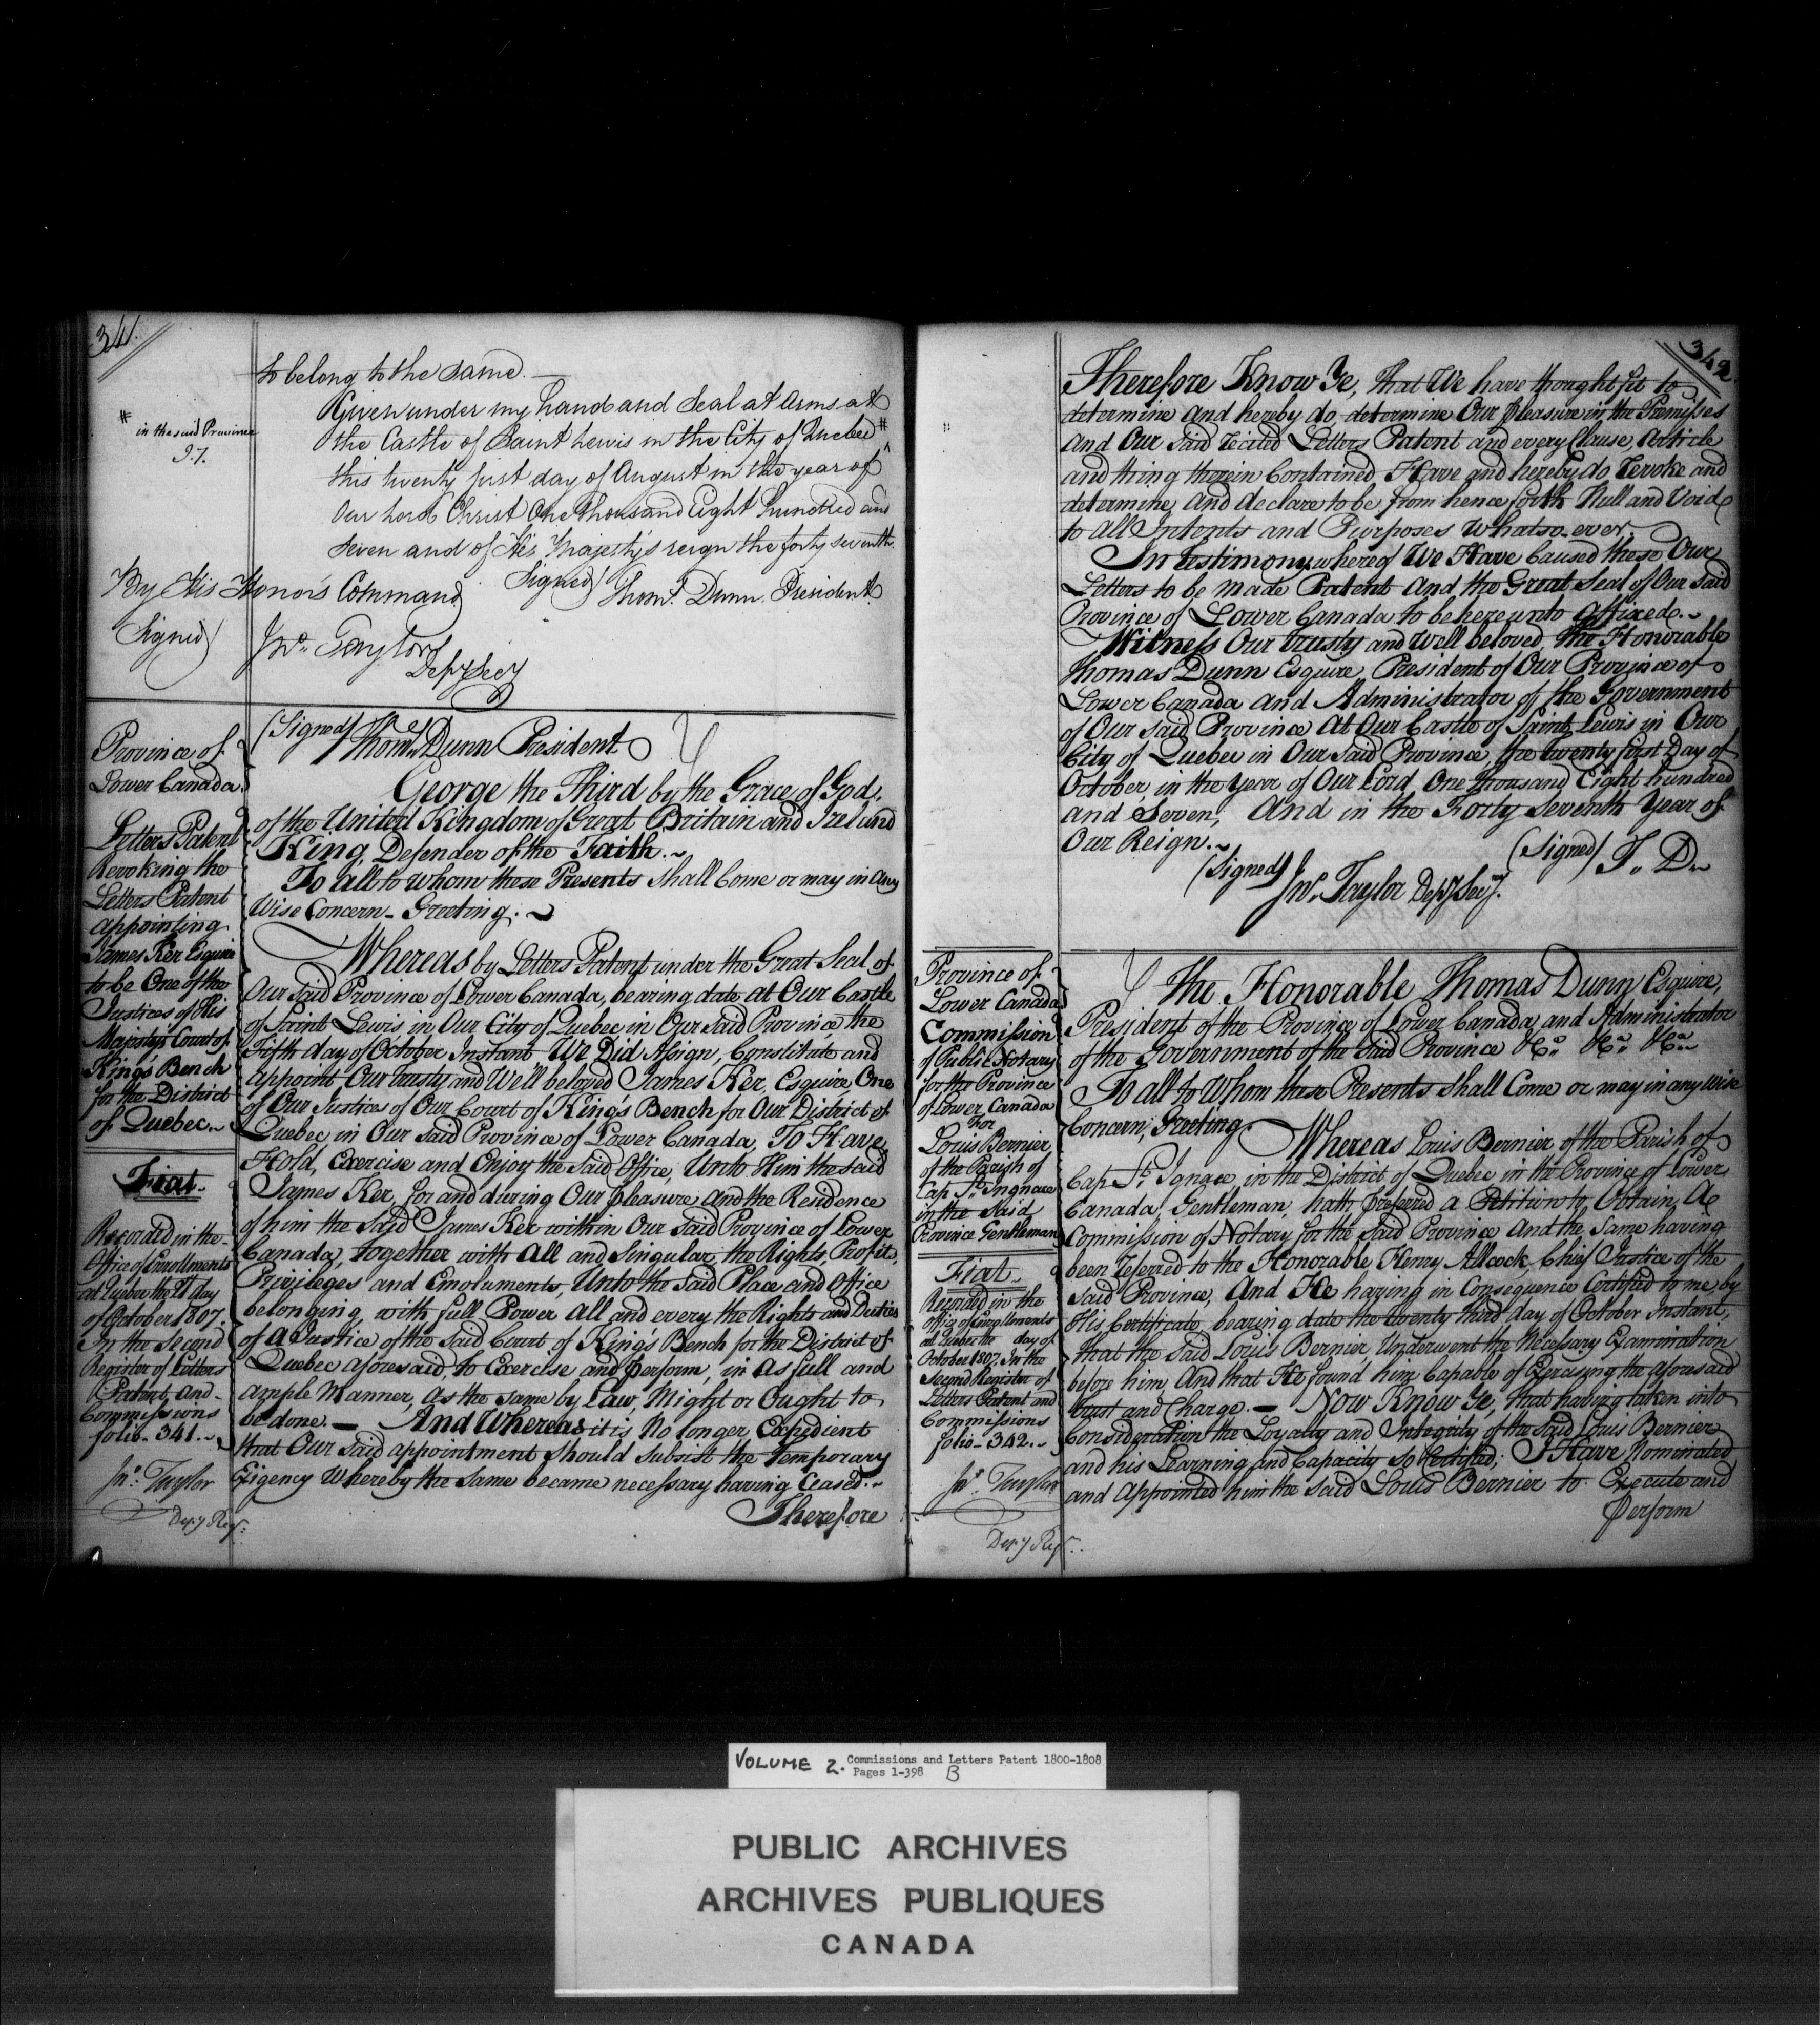 341.
to belong to the same. —
Given under my hand and Seal at Arms at
the Castle of Saint Lewis in the City of Quebec #
# in the said Province
this twenty first day of August in the year of
Our Lord Christ One Thousand Eight Hundred and
Seven and of His Majesty's reign the forty seventh.
Signed) Thom.s Dunn. President.
By His Honor's Command
Signed) Jno. Taylor
Depy Secy
Province of
Lower Canada.
Letters Patent
Revoking the
Letters Patent
appointing
James Ker Esquire
to be One of the
Justices of His
Majesty's Court of
King's Bench
for the District
of Quebec.~
Fiat.
Recorded in the
Office of Enrollments
at Quebec the day
of October 1807.
In the Second
Register of Letters
Patent, and
Commissions
folio - 341.~
Jno. Taylor
Depy Regr.
(Signed) Thom.s Dunn President
George the Third by the Grace of God,
of the United Kingdom of Great Britain and Ireland
King, Defender of the Faith.~
To all to whom these Presents shall Come or may in any
Wise Concern - Greeting.~
Whereas by Letters Patent under the Great Seal of
Our Said Province of Lower Canada, bearing date at Our Castle
of Saint Lewis in Our City of Quebec in Our Said Province the
Fifth day of October Instant We Did Assign, Constitute and
appoint, Our trusty and Well beloved James Ker, Esquire, One
of Our Justices of Our Court of King's Bench for Our District of
Quebec, in Our Said Province of Lower Canada, To Have,
Hold, Exercise and Enjoy the Said Office, Unto Him the said
James Ker, for and during Our pleasure and the Residence
of him the Said James Ker within Our Said Province of Lower
Canada, together with all and Singular, the Rights, Profits,
Privileges and Emoluments, Unto the Said Place and Office
belonging, with full Power all and every the Rights and Duties
of a Justice of the Said Court of King's Bench for the District of
Quebec aforesaid, to Exercise and perform, in as full and
ample Manner, as the same by Law, Might or Ought to
be done. — And Whereas it is No longer Expedient
that Our Said appointment should subsist the Temporary
Exigency Whereby the Same became necessary having Ceased.~
Therefore
342.
Therefore Know Ye, that We have thought fit to
determine and hereby do determine Our pleasure in the Premisses
And Our Said recited Letters Patent and every Clause, Article
and thing therein Contained, Have and hereby do revoke and
determine, and declare to be from hence forth Null and Void
to all Intents and Purposes Whatso-ever.
In testimony whereof We Have Caused these Our
Letters to be made Patent and the Great Seal of Our Said
Province of Lower Canada to be hereunto affixed.~
Witness Our trusty and Well beloved, The Honorable
Thomas Dunn Esquire, President of Our Province of
Lower Canada and Administrator of the Government
of Our Said Province At Our Castle of Saint Lewis in Our
City of Quebec in Our Said Province, the twenty first Day of
October, in the Year of Our Lord, One thousand Eight hundred
and Seven, And in the Forty Seventh Year of
Our Reign.~
(Signed) T. D.
(Signed) Jno. Taylor Depy Secy.
Province of
Lower Canada
Commission
of Public Notary
for the Province
of Lower Canada
For
Louis Bernier,
of the Parish of
Cap St. Ingnace
in the Said
Province Gentleman
Fiat.
Recorded in the
Office of Enrollments
at Quebec the day of
October 1807. In the
Second Register of
Letters Patent and
Commissions
folio - 342.~
Jno. Taylor
Depy Regr.
The Honorable Thomas Dunn Esquire,
President of the Province of Lower Canada and Administrator
of the Government of the Said Province &ca. &ca. &ca.
To all to Whom these Presents shall Come or may in any wise
Concern, Greeting. Whereas Louis Bernier of the Parish of
Cap St. Ignace, in the District of Quebec in the Province of Lower
Canada, Gentleman, hath preferred a Petition to Obtain, A
Commission of Notary for the Said Province And the Same having
been referred to the Honorable Henry Allcock, Chief Justice of the
Said Province, And He having in Consequence Certified to me, by
His Certificate, bearing date the twenty third day of October Instant,
that the Said Louis Bernier Underwent the Necessary Examination
before him, And that He found him Capable of Exercising the aforesaid
trust and Charge. — Now Know Ye, that having taken into
Consideration the Loyalty and Integrity of the Said Louis Bernier
and his Learning and Capacity so Certified; I Have Nominated
and Appointed him the Said Louis Bernier to Execute and
perform
VOLUME 2. Commissions and Letters Patent 1800-1808
Pages 1-398 B
PUBLIC ARCHIVES
ARCHIVES PUBLIQUES
CANADA